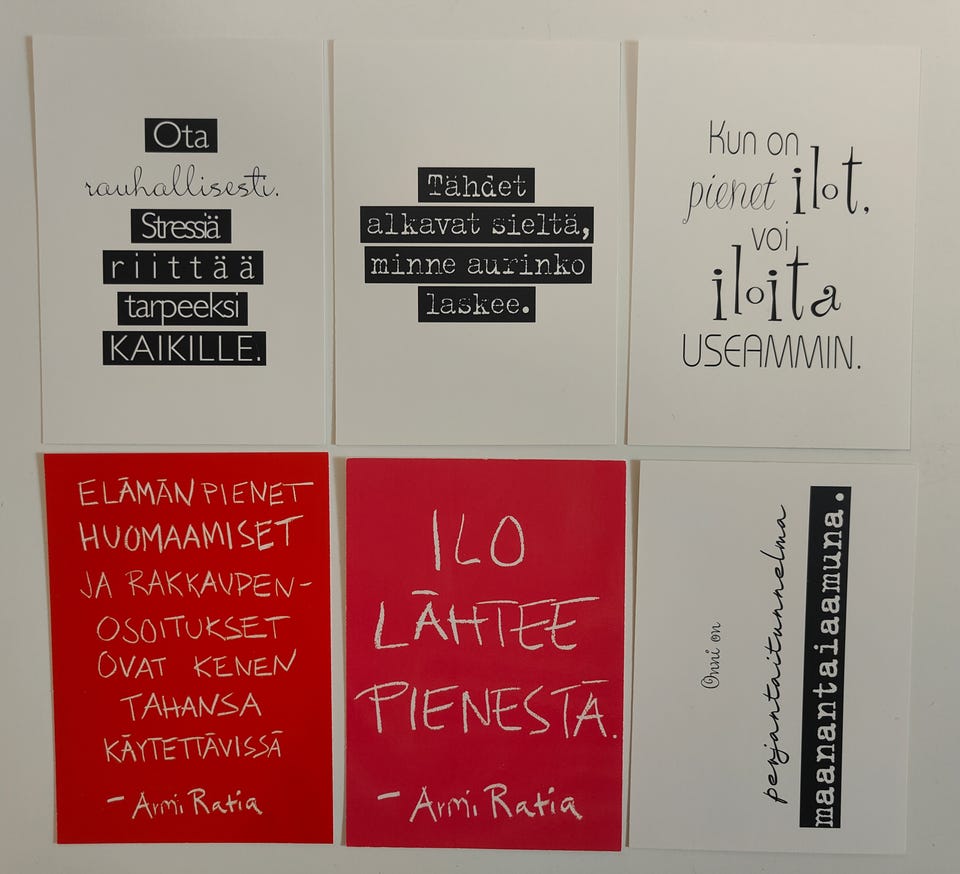 Ota
rauhallisesti.
Stressiä
riittää
tarpeeksi
KAIKILLE.
Tähdet
alkavat sieltä,
minne aurinko
laskee.
Kun on
pienet ilot,
voi
iloita
USEAMMIN.
ELÄMÄN PIENET
HUOMAAMISET
JA RAKKAUDEN-
OSOITUKSET
OVAT KENEN
TAHANSA
KÄYTETTÄVISSÄ
- Armi Ratia
ILO
LÄHTEE
PIENESTÄ.
- Armi Ratia
Onni on
perjantaitunnelma
maanantaiaamuna.